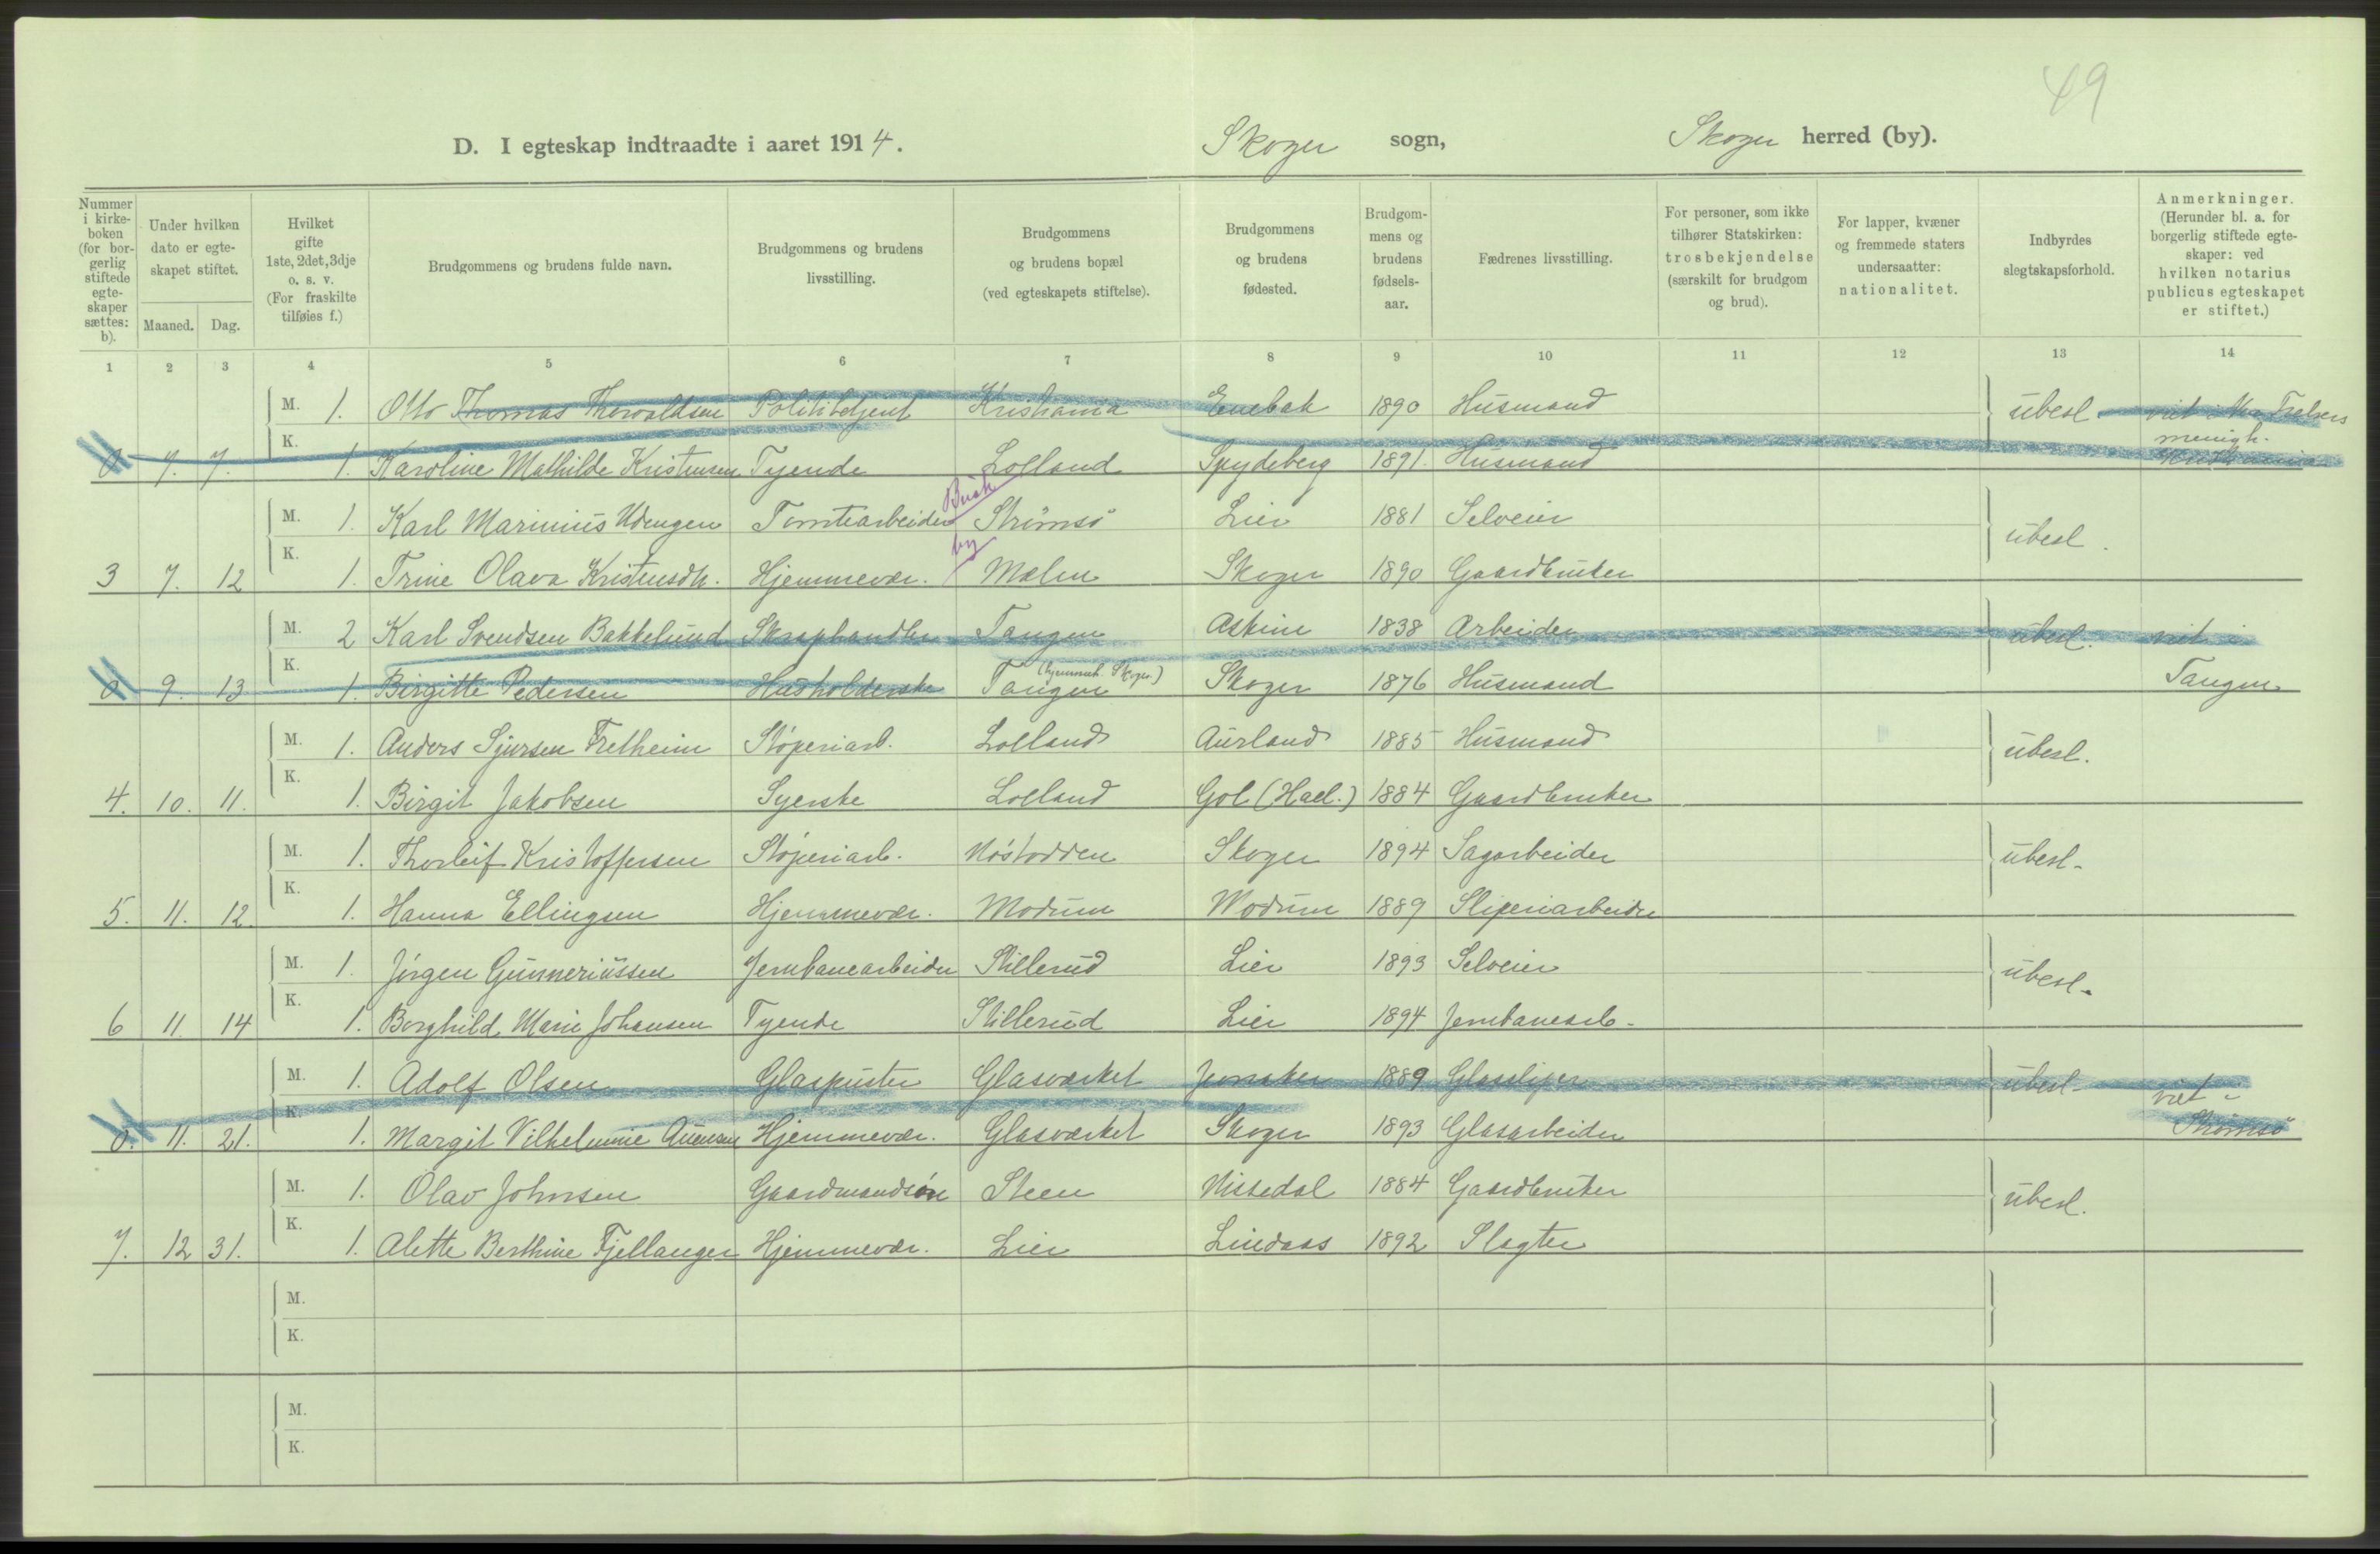 49
D. I egteskap indtraadte i aaret 1914. Skoger sogn, Skoger herred (by).
Nummer i kirkeboken (for borgerlig stiftede egteskaper sættes: b).
Under hvilken dato er egteskapet stiftet.
Maaned. Dag.
Hvilket gifte 1ste, 2det, 3dje o. s. v. (For fraskilte tilføies f.)
Brudgommens og brudens fulde navn.
Brudgommens og brudens livsstilling.
Brudgommens og brudens bopæl (ved egteskapets stiftelse).
Brudgommens og brudens fødested.
Brudgommens og brudens fødselsaar.
Fædrenes livsstilling.
For personer, som ikke tilhører Statskirken: trosbekjendelse (særskilt for brudgom og brud).
For lapper, kvæner og fremmede staters undersaatter: nationalitet.
Indbyrdes slegtskapsforhold.
Anmerkninger. (Herunder bl. a. for borgerlig stiftede egteskaper: ved hvilken notarius publicus egteskapet er stiftet.)
1 2 3 4 5 6 7 8 9 10 11 12 13 14
M. 1. Otto Thomas Thorvaldsen Politibetjent Kristiania Enebak 1890 Husmand ubesl. viet i Vor Frelsers
menigh.
0 7. 7. K. 1. Karoline Mathilde Kristensen Tyende Lolland Spydeberg 1891. Husmand Kristiania
M. 1. Karl Marinius Udengen Tomtearbeider Busk Strömsö Lier 1881 Selveier ubesl.
by
3 7. 12 K. 1. Trine Olava Kristensdtr. Hjemmevær. Mælen Skoger 1890 Gaardbruker
M. 2 Karl Svendsen Bakkelund Skraphandler Tangen Askim 1838 Arbeider ubesl. viet i
(hjemmeh. Skoger)
0 9. 13 K. 1. Birgitte Pedersen Husholderske Tangen Skoger 1876 Husmand Tangen
M. 1. Anders Sjursen Fretheim Støperiarb. Lolland Aurland 1885 Husmand ubesl.
4. 10. 11. K. 1. Birgit Jakobsen Syerske Lolland Gol (Hall.) 1884 Gaardbruker
M. 1. Thorleif Kristoffersen Støperiarb. Nøstodden Skoger 1894 Sagarbeider ubesl.
5. 11. 12. K. 1. Hanna Ellingsen Hjemmevær. Modum Modum 1889 Sliperiarbeider
M. 1. Jörgen Gunneriussen Jernbanearbeider Skillerud Lier 1893 Selveier ubesl.
6 11. 14 K. 1. Borghild Marie Johansen Tyende Skillerud Lier 1894 Jernbanearb.
M. 1. Adolf Olsen Glaspuster Glasværket Jevnaker 1889 Glassliper ubesl. viet i
0. 11. 21. K. 1. Margit Vilhelmine Auensen Hjemmevær. Glasværket Skoger 1893 Glasarbeider Strömsö
M. 1. Olav Johnsen Gaardmandsøn Steen Nissedal 1884 Gaardbruker ubesl.
7. 12 31. K. 1. Alette Berthine Fjellanger Hjemmevær. Lier Lindaas 1892 Slagter
M.
K.
M.
K.